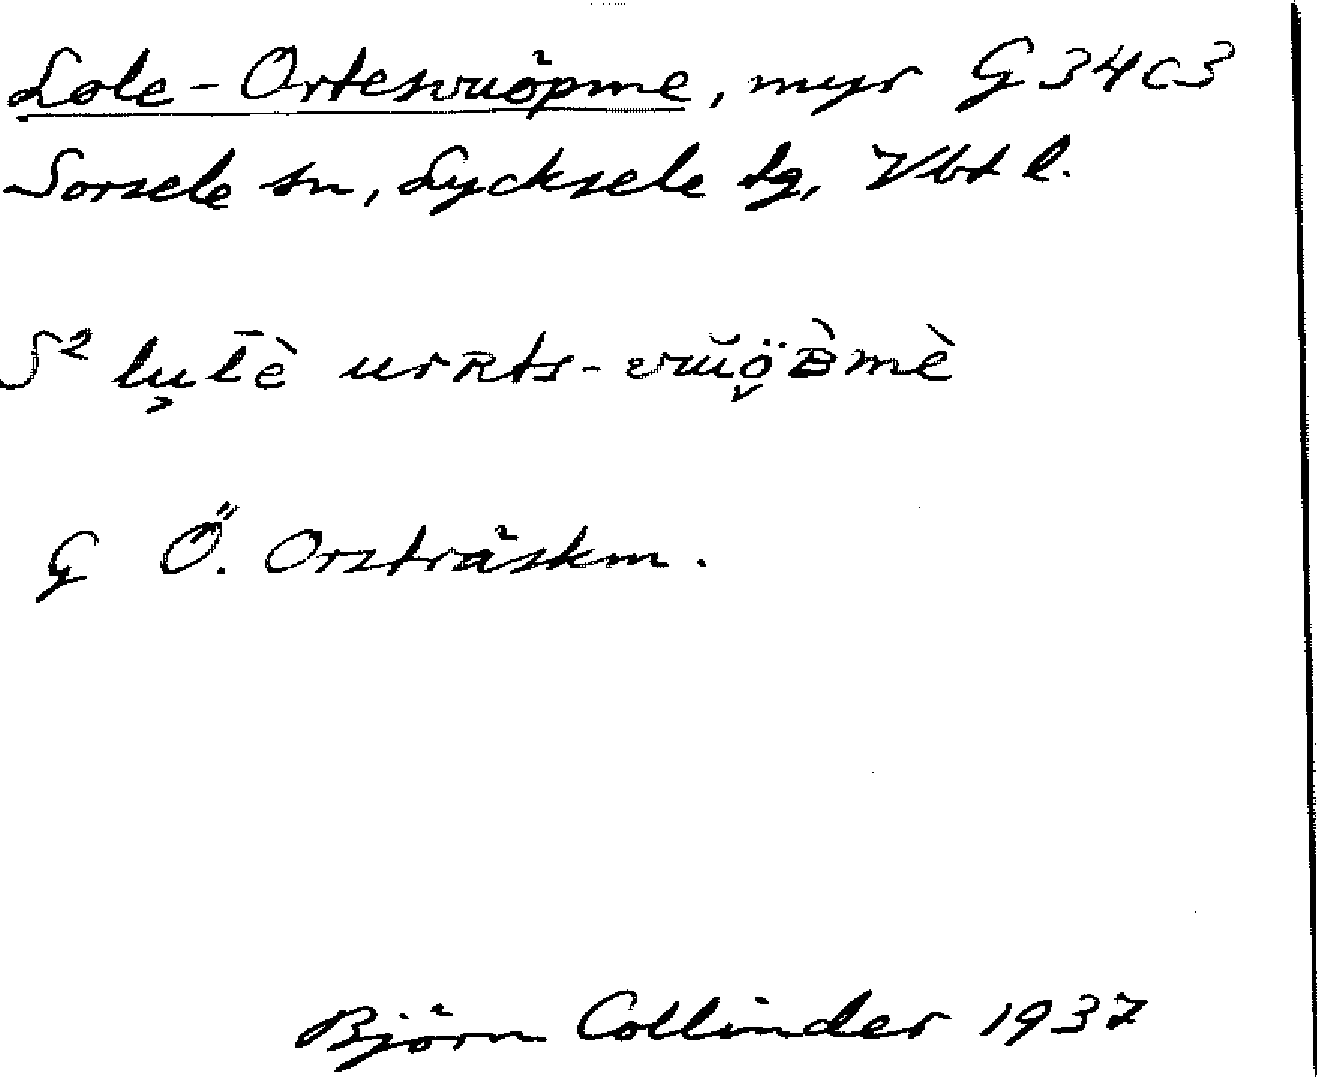 Lole-Ortesvuöpme, myr G 34 C 3
Sorsele sn, Lycksele tg, Vbt l.
S² lu̜l̅è urʀts-vŭö̬ʙ̀mè
G Ö. Orsträskm.
Björn Collinder 1937